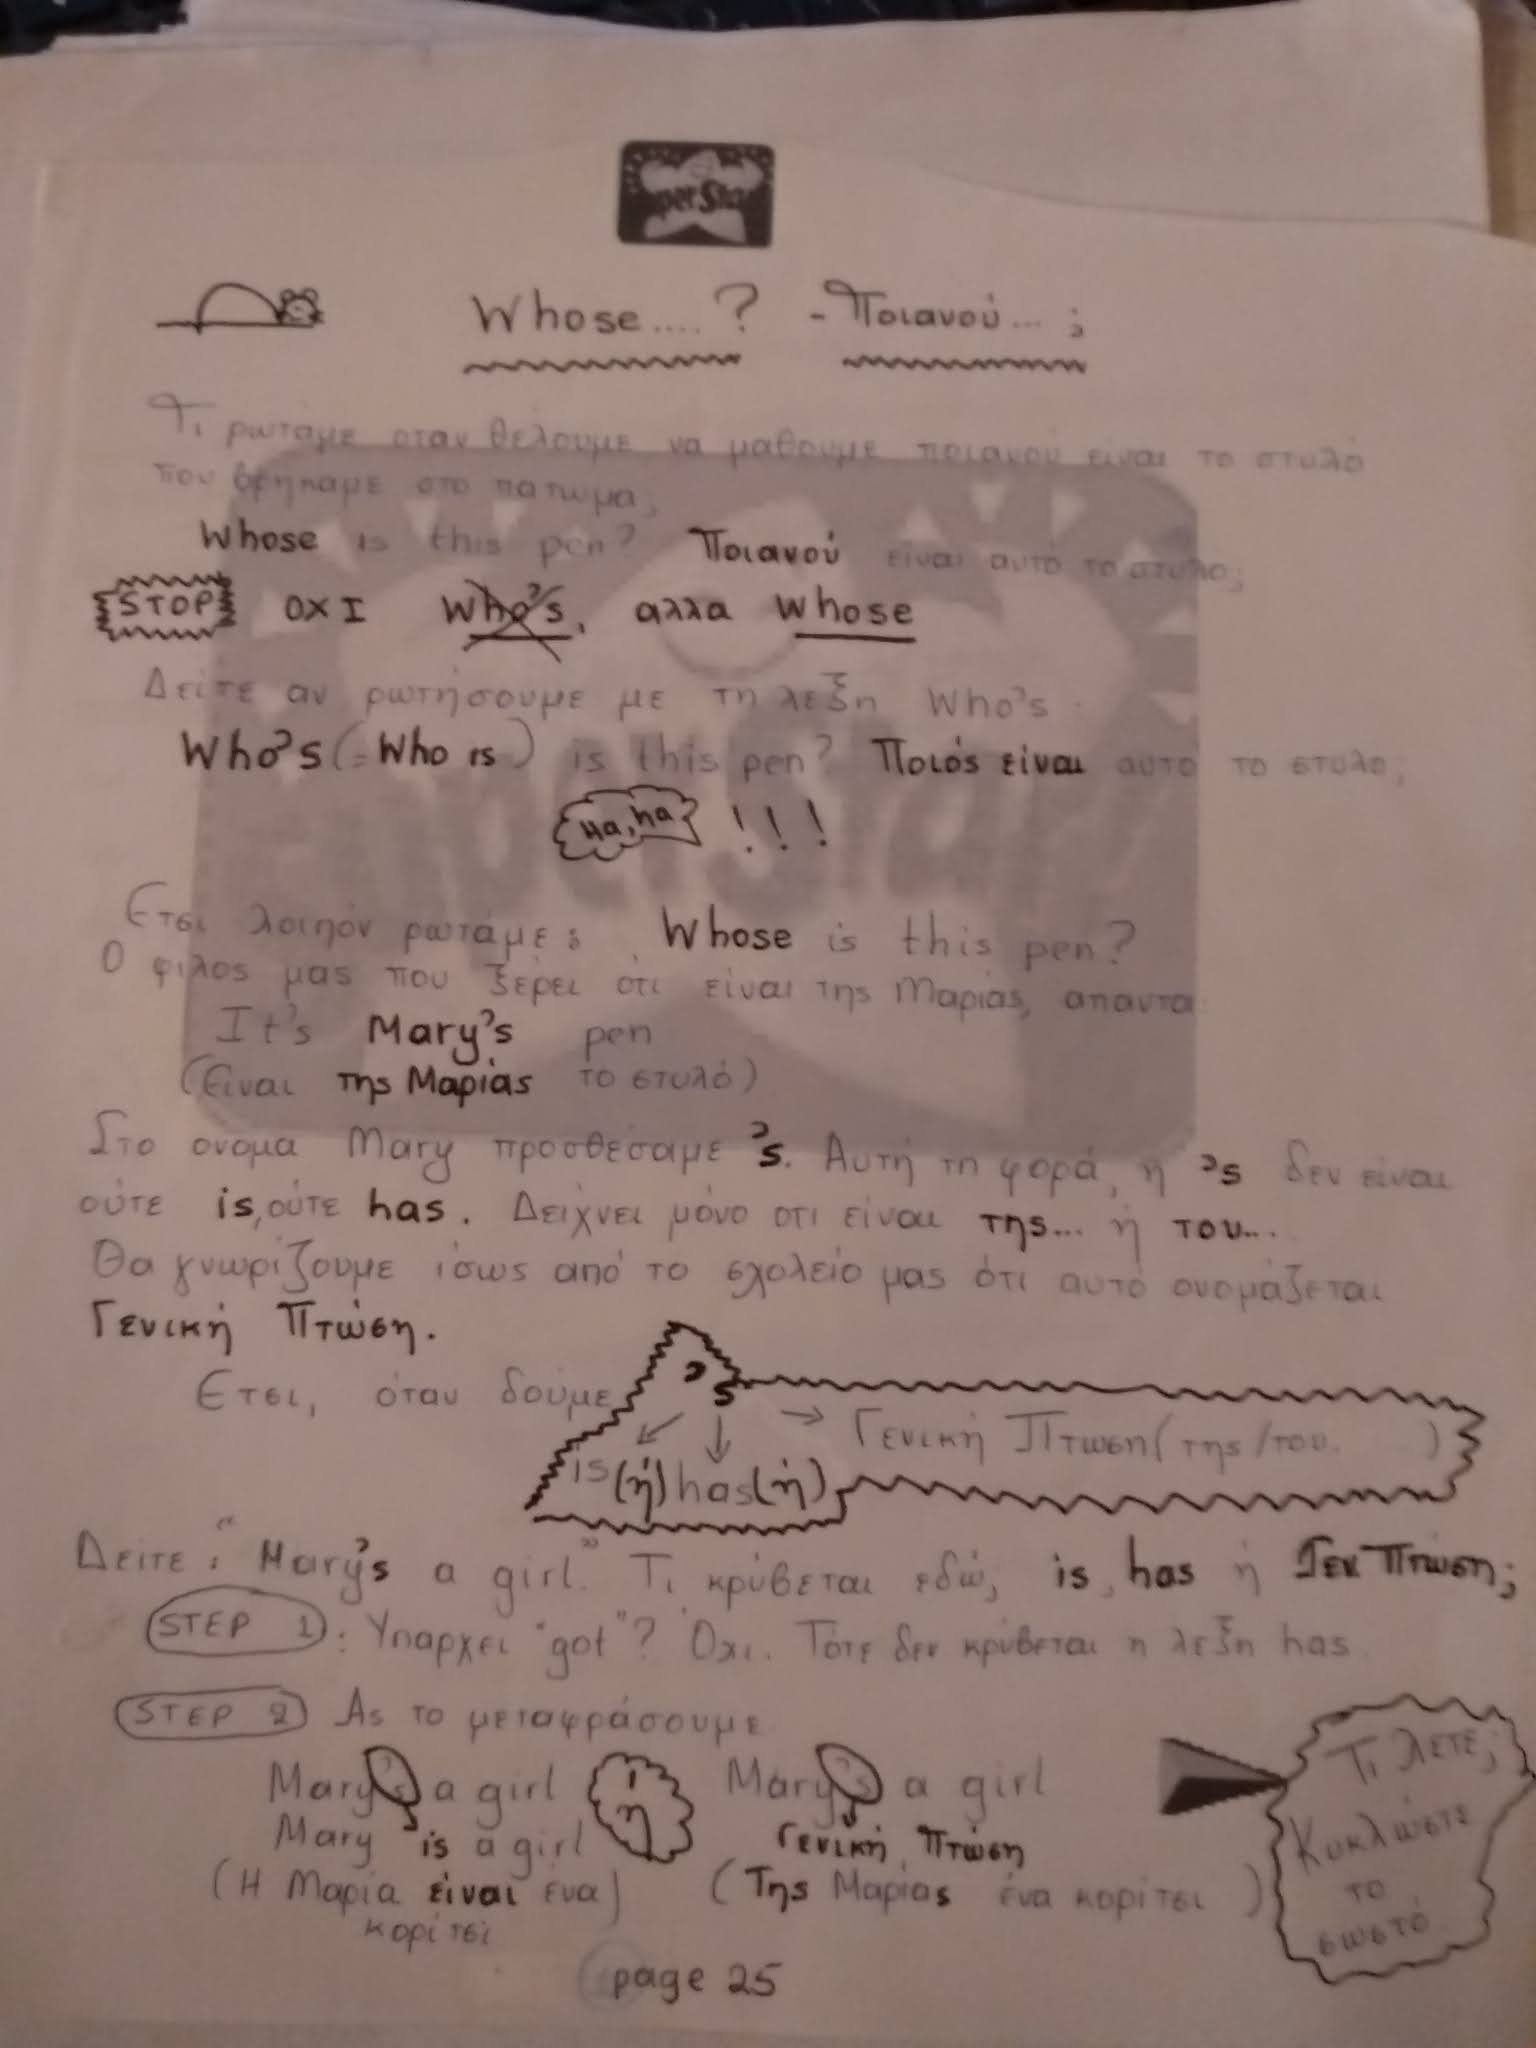 perSta
Whose....? - Ποιανού... ;
Τι ρωτάμε οταν θέλουμε να μάθουμε ποιανού είναι το στυλό
που βρήκαμε στο πάτωμα;
Whose is this pen? Ποιανού είναι αυτό το στυλο;
STOP ΟΧΙ Who's, αλλα whose
Δείτε αν ρωτήσουμε με τη λεξη Who's.
Who's (= Who is) is this pen? Ποιός είναι αυτό το στυλο;
Ha, ha !!!
Ετσι λοιπόν ρωτάμε: Whose is this pen?
Ο φιλος μας που ξέρει ότι είναι της Μαρίας, απαντα:
It's Mary's pen
(Είναι της Μαρίας το στυλό)
Στο ονομα Mary προσθέσαμε 's. Αυτή τη φορά, η 's δεν είναι
ούτε is, ούτε has. Δείχνει μόνο οτι είναι της... ή του...
Θα γνωρίζουμε ίσως από το σχολείο μας ότι αυτό ονομάζεται
Γενική Πτώση.
Ετσι, όταν δούμε 's
→ Γενική Πτωση (της/του. )
is (ή) has (ή)
Δείτε: "Mary's a girl." Τι κρύβεται εδώ; is, has ή Γεν Πτώση;
STEP 1: Υπαρχει "got"? Όχι. Τότε δεν κρύβεται η λεξη has.
STEP 2 Ας το μεταφράσουμε
Mary's a girl ή Mary's a girl
Mary is a girl Γενική Πτώση
(Η Μαρία είναι ένα) (Της Μαρίας ένα κορίτσι )
κορίτσι
Τι λετε;
Κυκλώστε
το
σωστό
page 25